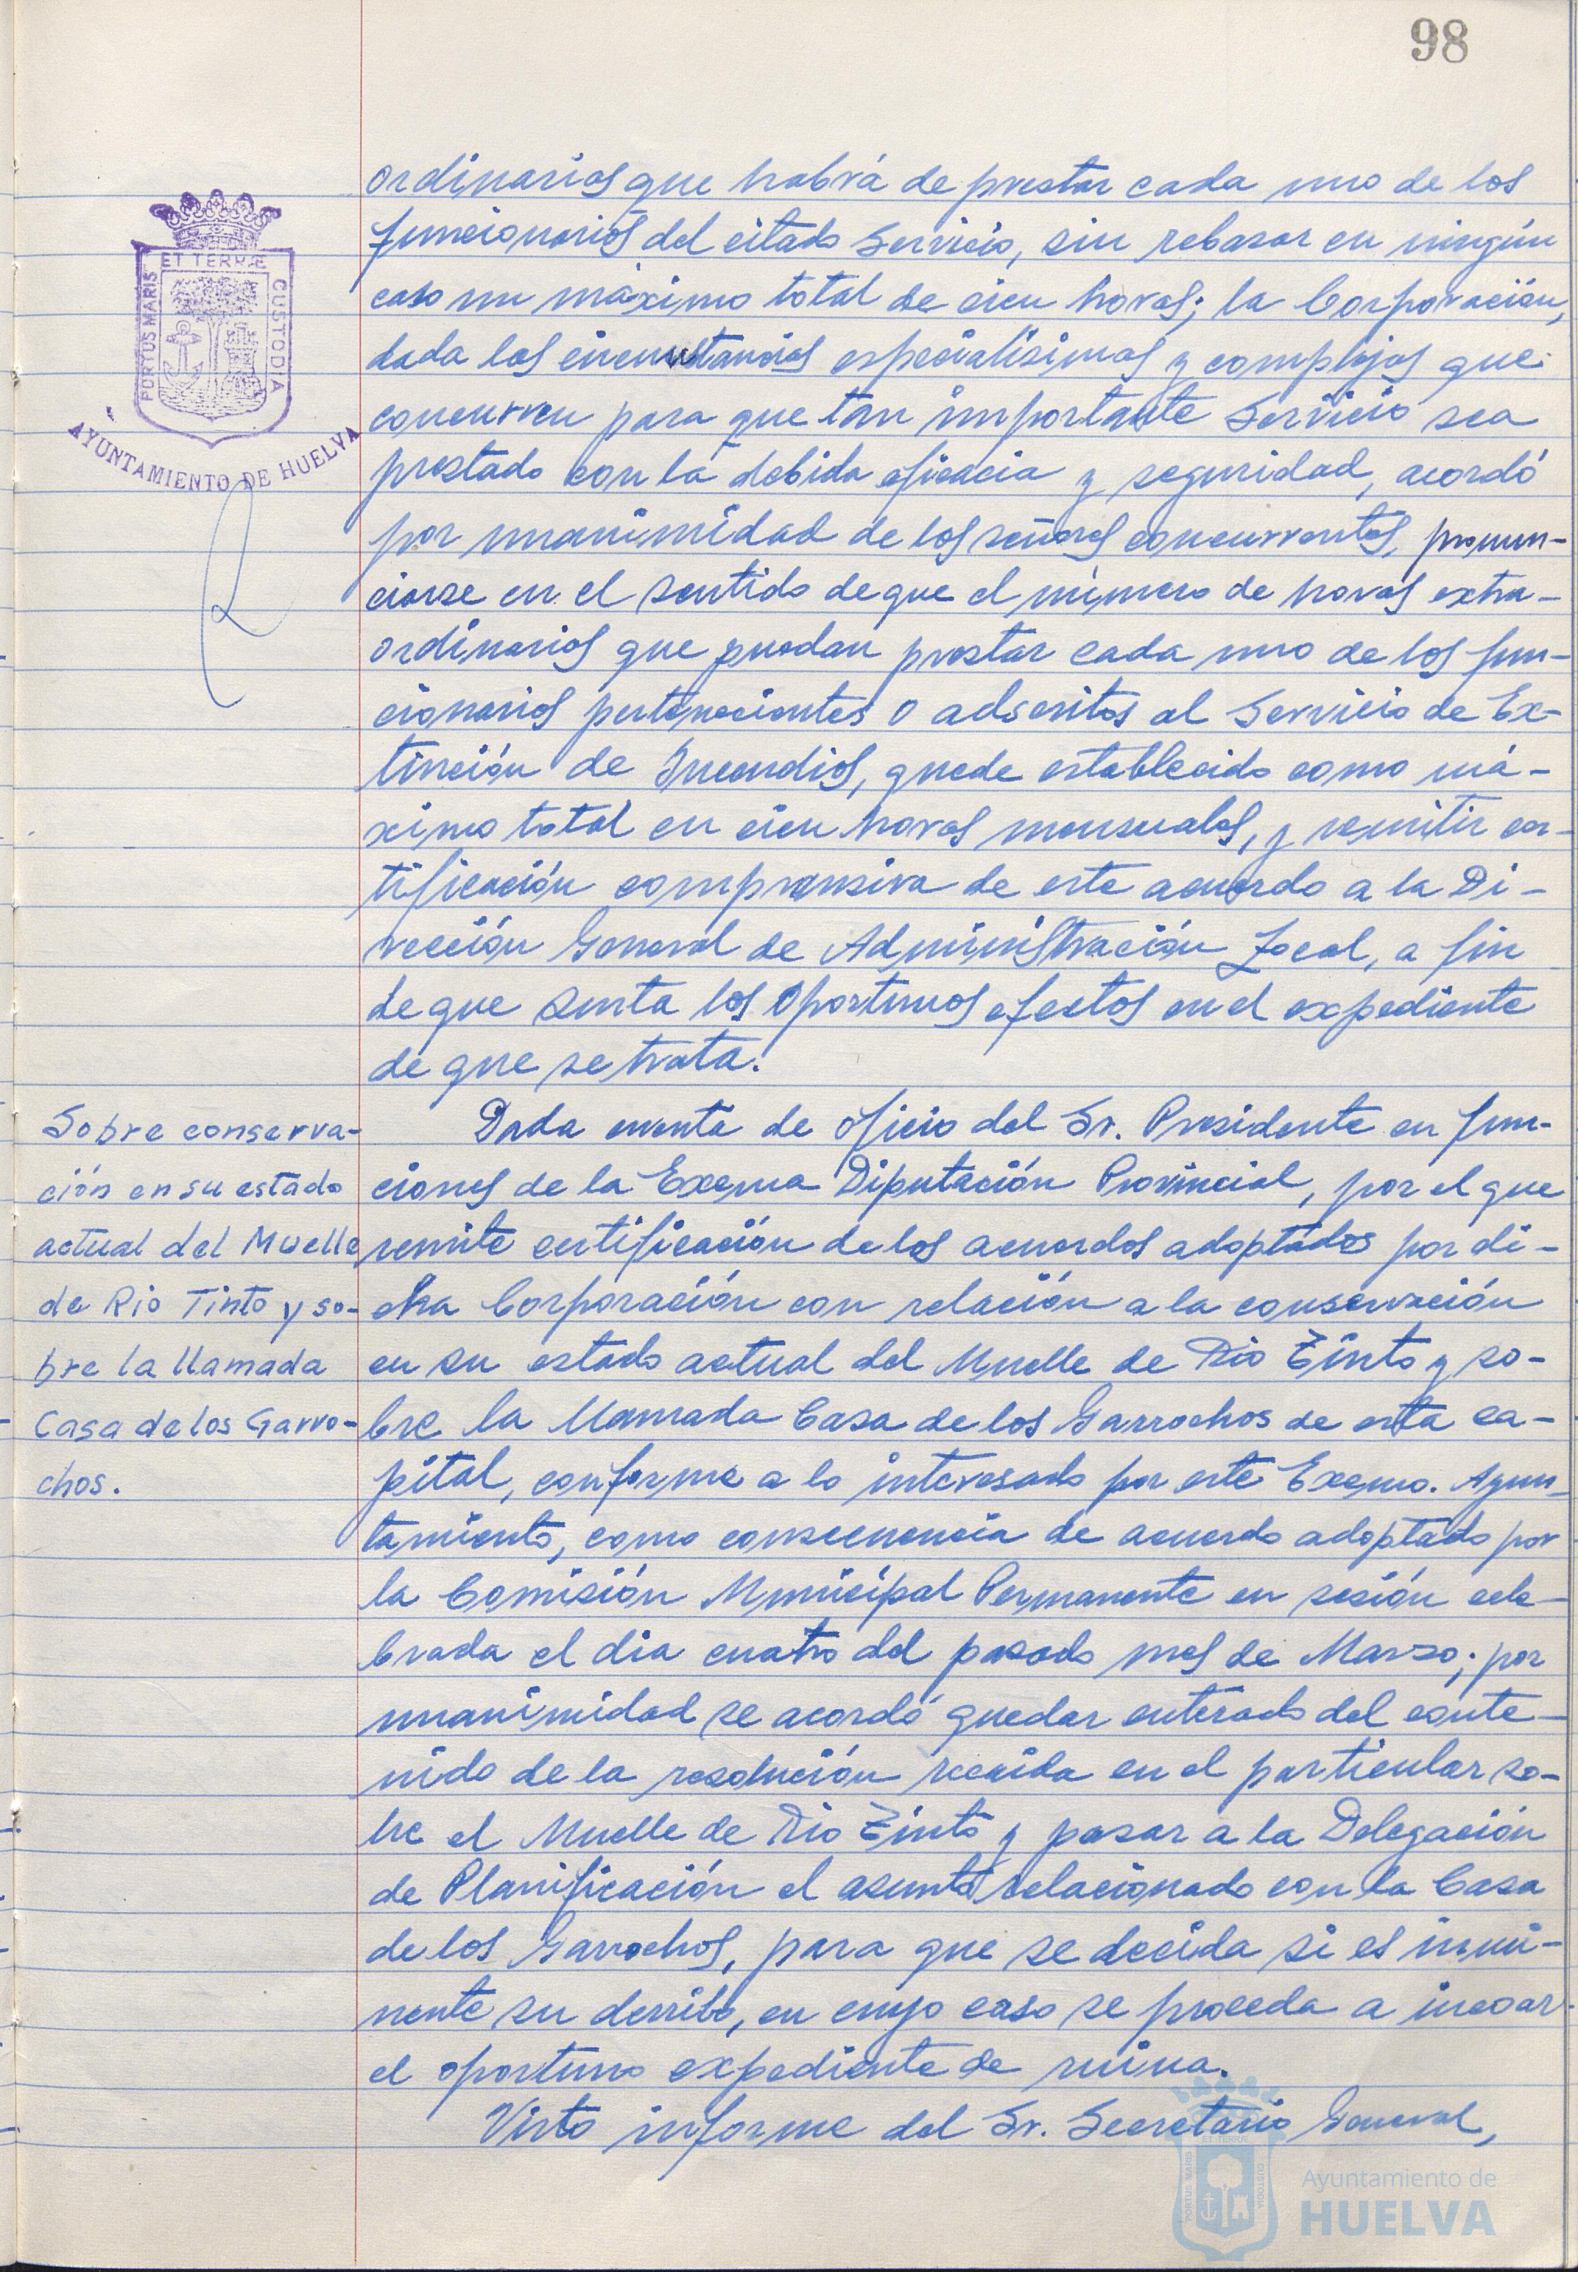 98
ordinarias que habrá de prestar cada uno de los
funcionarios del citado Servicio, sin rebasar en ningún
caso un máximo total de cien horas; la Corporación,
dada las circunstancias especialísimas y complejas que
concurren para que tan importante Servicio sea
prestado con la debida eficacia y seguridad, acordó
por unanimidad de los señores concurrentes, pronun-
ciarse en el sentido de que el número de horas extra-
ordinarias que puedan prestar cada uno de los fun-
cionarios pertenecientes o adscritos al Servicio de Ex-
tinción de Incendios, quede establecido como má-
ximo total en cien horas mensuales, y remitir cer-
tificación comprensiva de este acuerdo a la Di-
rección General de Administración Local, a fin
de que surta los oportunos efectos en el expediente
de que se trata.
Sobre conserva-
ción en su estado
actual del Muelle
de Rio Tinto y so-
bre la llamada
Casa de los Garro-
chos.
Dada cuenta de oficio del Sr. Presidente en fun-
ciones de la Excma Diputación Provincial, por el que
remite certificación de los acuerdos adoptados por di-
cha Corporación con relación a la conservación
en su estado actual del Muelle de Rio Tinto y so-
bre la llamada Casa de los Garrochos de esta ca-
pital, conforme a lo interesado por este Excmo. Ayun-
tamiento, como consecuencia de acuerdo adoptado por
la Comisión Municipal Permanente en sesión cele-
brada el dia cuatro del pasado mes de Marzo; por
unanimidad se acordó quedar enterado del conte-
nido de la resolución recaida en el particular so-
bre el Muelle de Rio Tinto y pasar a la Delegación
de Planificación el asunto relacionado con la Casa
de los Garrochos, para que se decida si es inmi-
nente su derribo, en cuyo caso se proceda a incoar
el oportuno expediente de ruina.
Visto informe del Sr. Secretario General,
PORTUS MARIS
ET TERRÆ
CUSTODIA
AYUNTAMIENTO DE HUELVA
PORTUS MARIS
ET TERRÆ
CUSTODIA
Ayuntamiento de
HUELVA